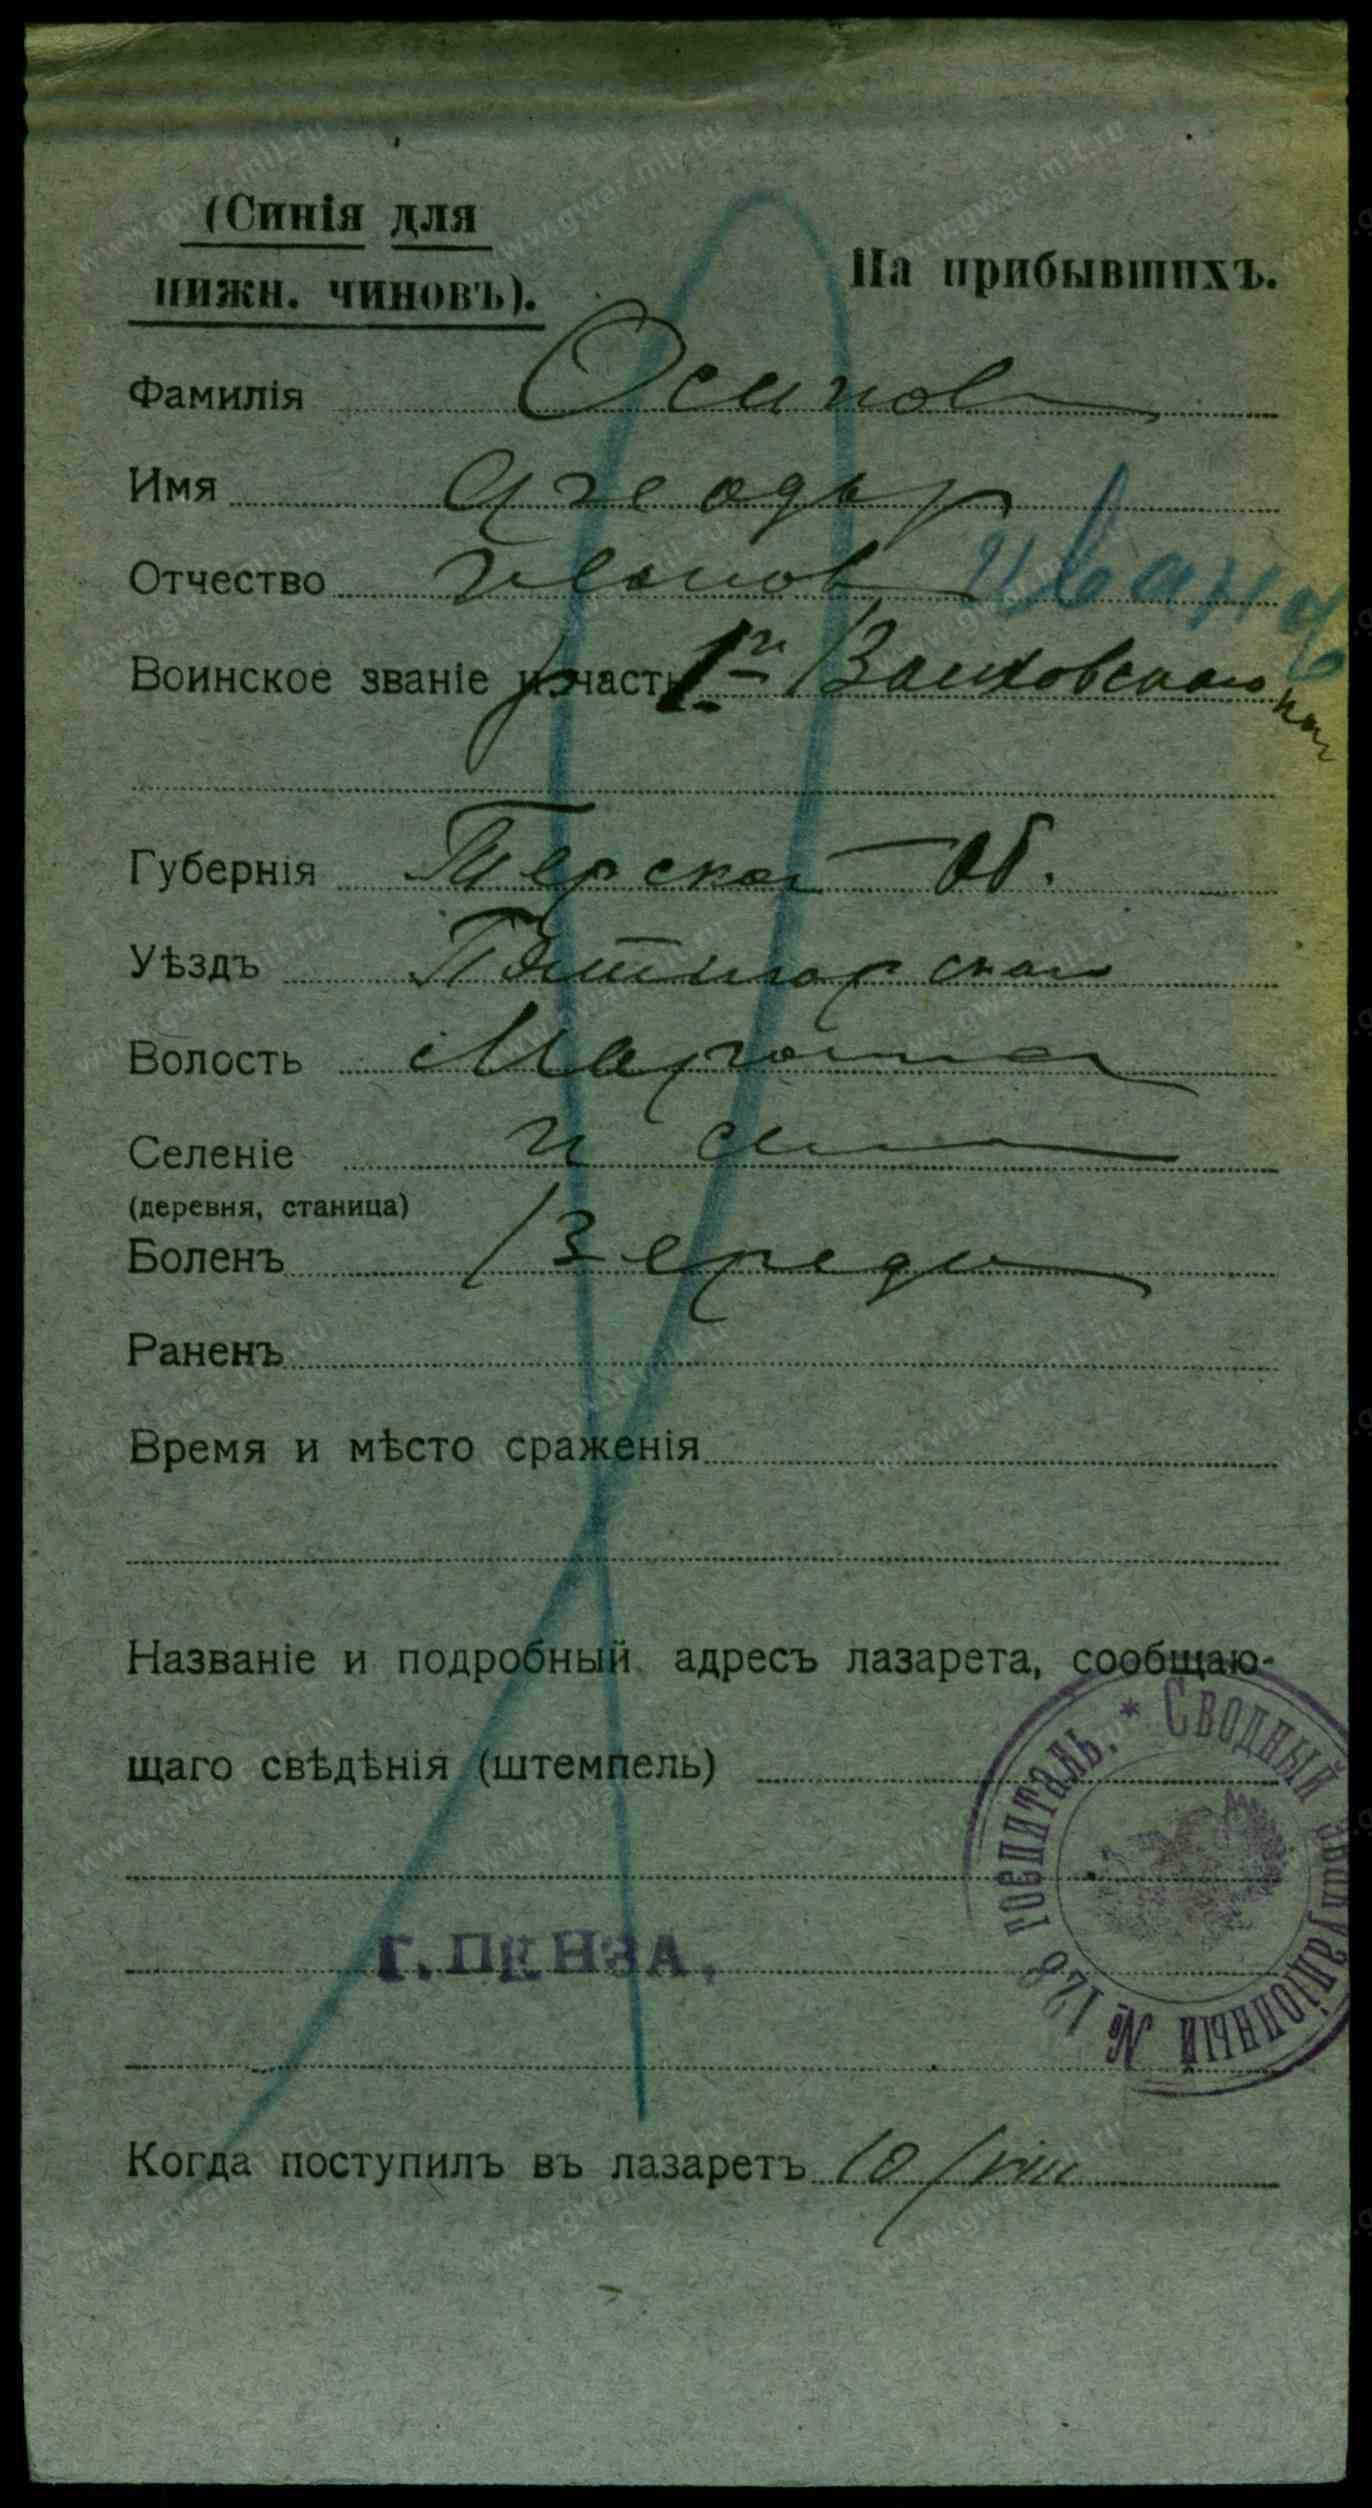 (Синія для
нижн. чиновъ).
На прибывшихъ.
Фамилія Осипов
Имя
Отчество Иванов
Воинское званіе и часть 1й
Губернія Терской Об.
Уѣздъ Пятигорской
Волость
Селеніе
(деревня, станица)
Боленъ
Раненъ
Время и мѣсто сраженія
Названіе и подробный адресъ лазарета, сообщаю-
щаго свѣдѣнія (штемпель)
* Сводный эвакуаціонный № 128 госпиталь.
Г. ПЕНЗА.
Когда поступилъ въ лазаретъ 10/VIII